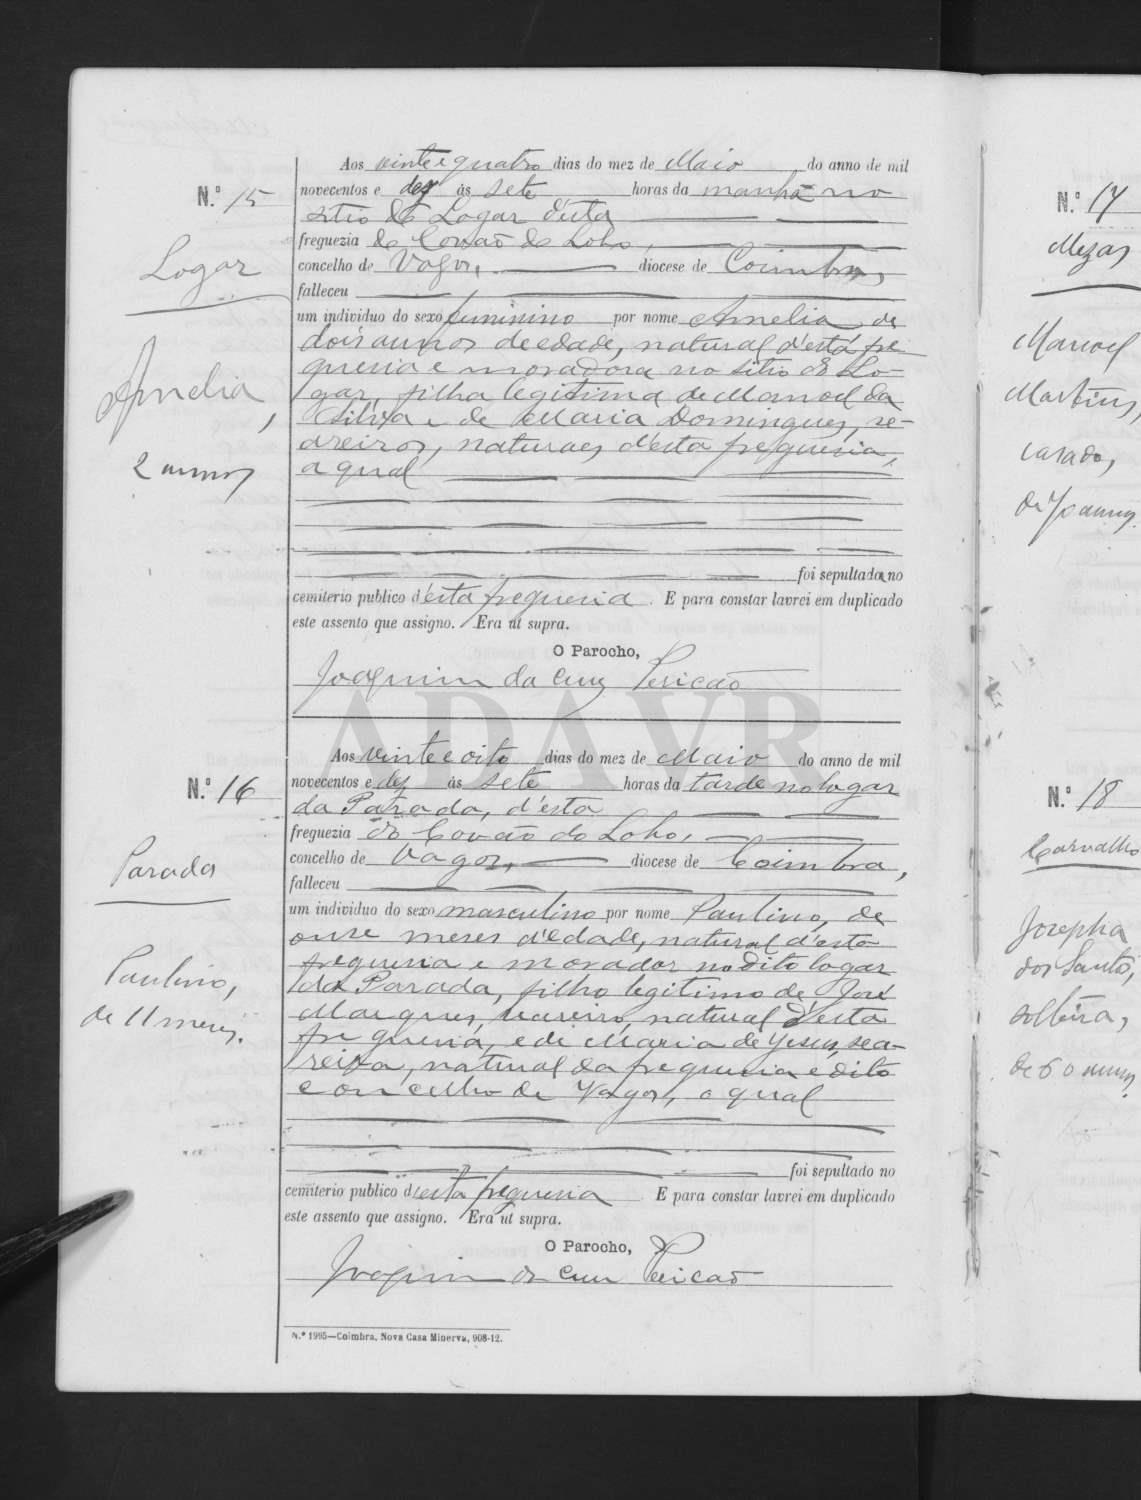 N.º 15
Logar
Amelia,
2 annos
Aos vinte e quatro dias do mez de Maio do anno de mil
novecentos e dez ás sete horas da manhã no
sitio do Logar d'esta
freguezia do Covão do Lobo,
concelho de Vagos, diocese de Coimbra,
falleceu
um individuo do sexo feminino por nome Amelia de
dois annos de edade, natural d'esta fre
guesia e moradora no sitio do Lo-
gar, filha legitima de Manoel da
Silva e de Maria Domingues, se-
areiros, naturaes d'esta freguesia,
a qual
foi sepultada no
cemiterio publico d'esta freguesia. E para constar lavrei em duplicado
este assento que assigno. Era ut supra.
O Parocho,
Joaquim da Cruz Pericão
ADAVR
N.º 16
Parada
Paulino,
de 11 meses.
Aos vinte e oito dias do mez de Maio do anno de mil
novecentos e dez ás sete horas da tarde no logar
da Parada, d'esta
freguezia do Covão do Lobo,
concelho de Vagos, diocese de Coimbra,
falleceu
um individuo do sexo masculino por nome Paulino, de
onze meses d'edade, natural d'esta
freguesia e morador no dito logar
da Parada, filho legitimo de José
Marques, seareiro, natural d'esta
freguesia, e de Maria de Jesus, sea-
reira, natural da freguesia e dito
concelho de Vagos, o qual
foi sepultado no
cemiterio publico d'esta freguesia E para constar lavrei em duplicado
este assento que assigno. Era ut supra.
O Parocho,
Joaquim da Cruz Pericão
N.º 1995—Coimbra, Nova Casa Minerva, 908-12.
N.º 17
Mezas
Manoel
Martins,
casado,
de annos
N.º 18
Carvalho
Josepha
dos Santos,
solteira,
de 60 annos